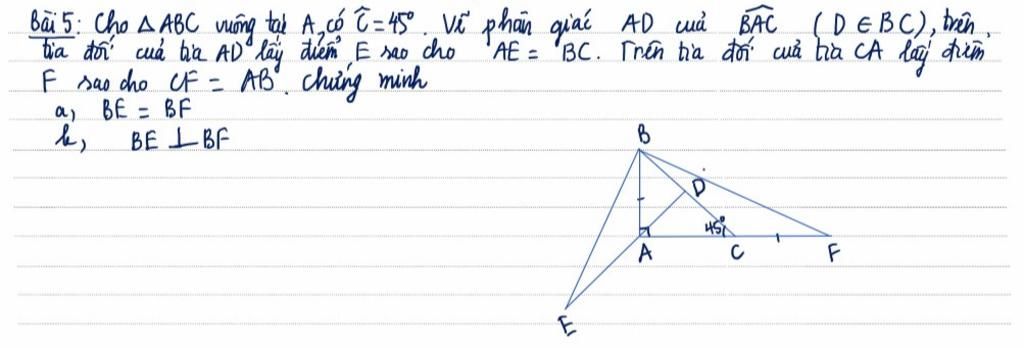 Bài 5: Cho △ABC vuông tại A, có Ĉ = 45°. Vẽ phân giác AD của BAC (D ∈ BC), trên
tia đối của tia AD lấy điểm E sao cho AE = BC. Trên tia đối của tia CA lấy điểm
F sao cho CF = AB. Chứng minh
a, BE = BF
b, BE ⊥ BF
B
D
45°
A
C
F
E